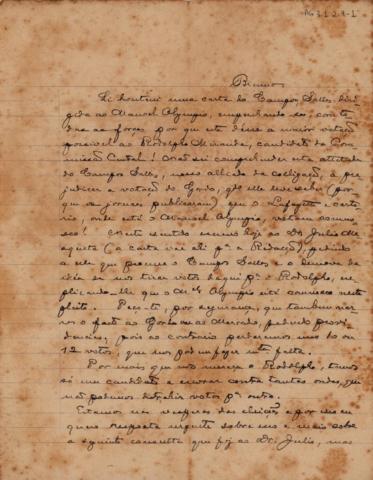 Pg 3.1.2.9-1
Bruno
Li hontem uma carta do Campos Salles diri-
gida ao Manoel Olympio, empenhando-se, com to-
das as forças por que este désse a maior votação
possivel ao Rodolpho Miranda, candidato da Com-
missão Central! Não sei comprehender esta attitude
do Campos Salles, nosso alliado da colligação, a pre-
judicar a votação do Gordo, qdo elle deve saber (por
que os jornaes publicaram) que o Lafayette e carto-
rio, onde está o Manoel Olympio, votam comnos-
co! Neste sentido escrevi hoje ao Dr. Julio Mes-
quita (a carta vae ali pa. a Redacção), pedindo
a elle que procure o Campos Salles e o demova da
idéia de nos tirar votos daqui pa. o Rodolpho, ex-
plicando-lhe que o Ml. Olympio está comnosco neste
pleito. Peço-te, por segurança, que tambem nar-
res o facto ao Gordo ou ao Mercado, pedindo provi-
dencias, pois ao contrario perderemos uns 10 ou
12 votos, que nos podem fazer muita falta.
Por mais que nos mereça o Rodolpho, temos
só um candidato a envorar contra tantas ondas, que
não podemos distrahir votos pa. outro.
Estamos nas vesperas das eleições e por isso eu
quero resposta urgente sobre isso e mais sobre
a seguinte consulta que fiz ao Dr. Julio, mas